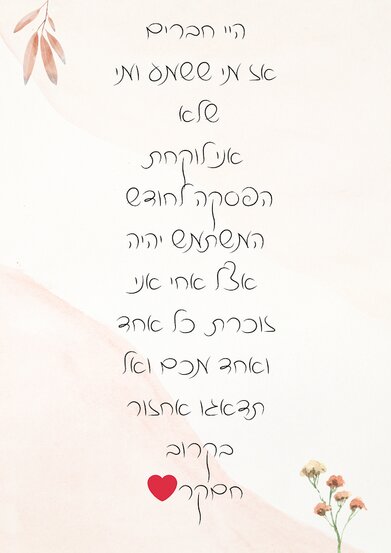 היי חברים
אז מי ששמע ומי
שלא
אני לוקחת
הפסקה לחודש
המשתמש יהיה
אצל אחי אני
זוכרת כל אחד
ואחד מכם ואל
תדאגו אחזור
בקרוב
חסקר❤️